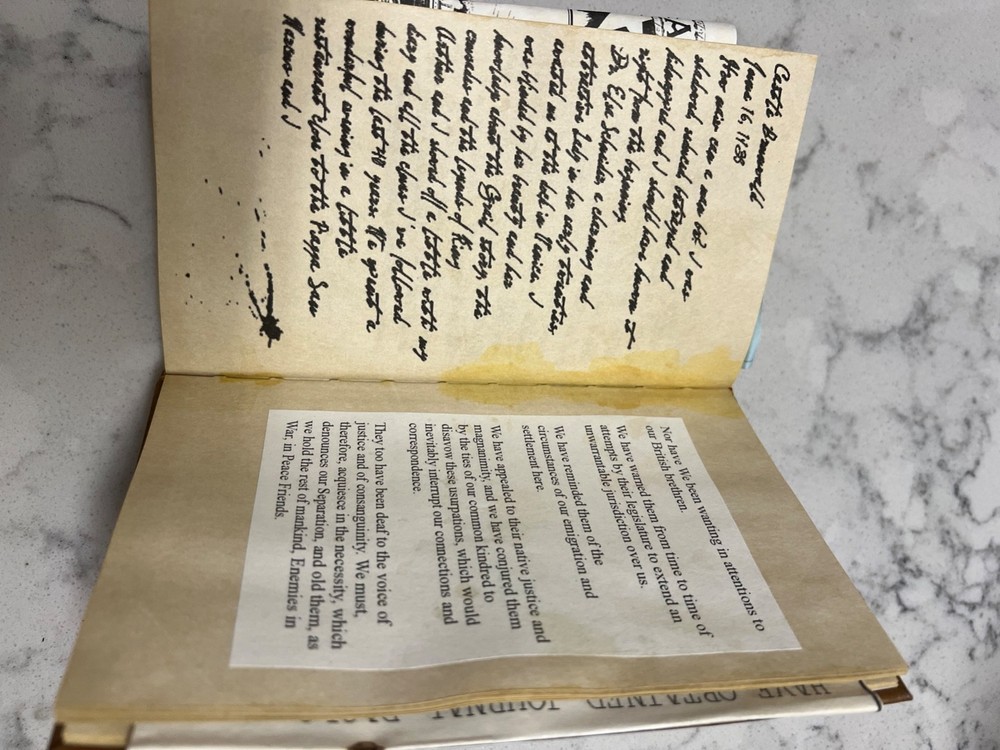 Castle Brunwald
June 16, 1938
How wise can a man be? I was
seduced, reduced, betrayed and
kidnapped and I should have known it
right from the beginning.
Dr. Elsa Schneider, a charming and
attractive lady in her early thirties,
invited me to the ball in Venice. I
was blinded by her beauty and her
knowledge about the Grail story, the
crusades and the legends of King
Arthur and I showed off a little with my
diary and all the clues I've followed
during the last 40 years. We spent a
wonderful evening in a little
restaurant close to the Piazza San
Marco and I
Nor have We been wanting in attentions to
our British brethren.
We have warned them from time to time of
attempts by their legislature to extend an
unwarrantable jurisdiction over us.
We have reminded them of the
circumstances of our emigration and
settlement here.
We have appealed to their native justice and
magnanimity, and we have conjured them
by the ties of our common kindred to
disavow these usurpations, which would
inevitably interrupt our connections and
correspondence.
They too have been deaf to the voice of
justice and of consanguinity. We must,
therefore, acquiesce in the necessity, which
denounces our Separation, and old them, as
we hold the rest of mankind, Enemies in
War, in Peace Friends.
HAVE OBTAINED JOURNAL